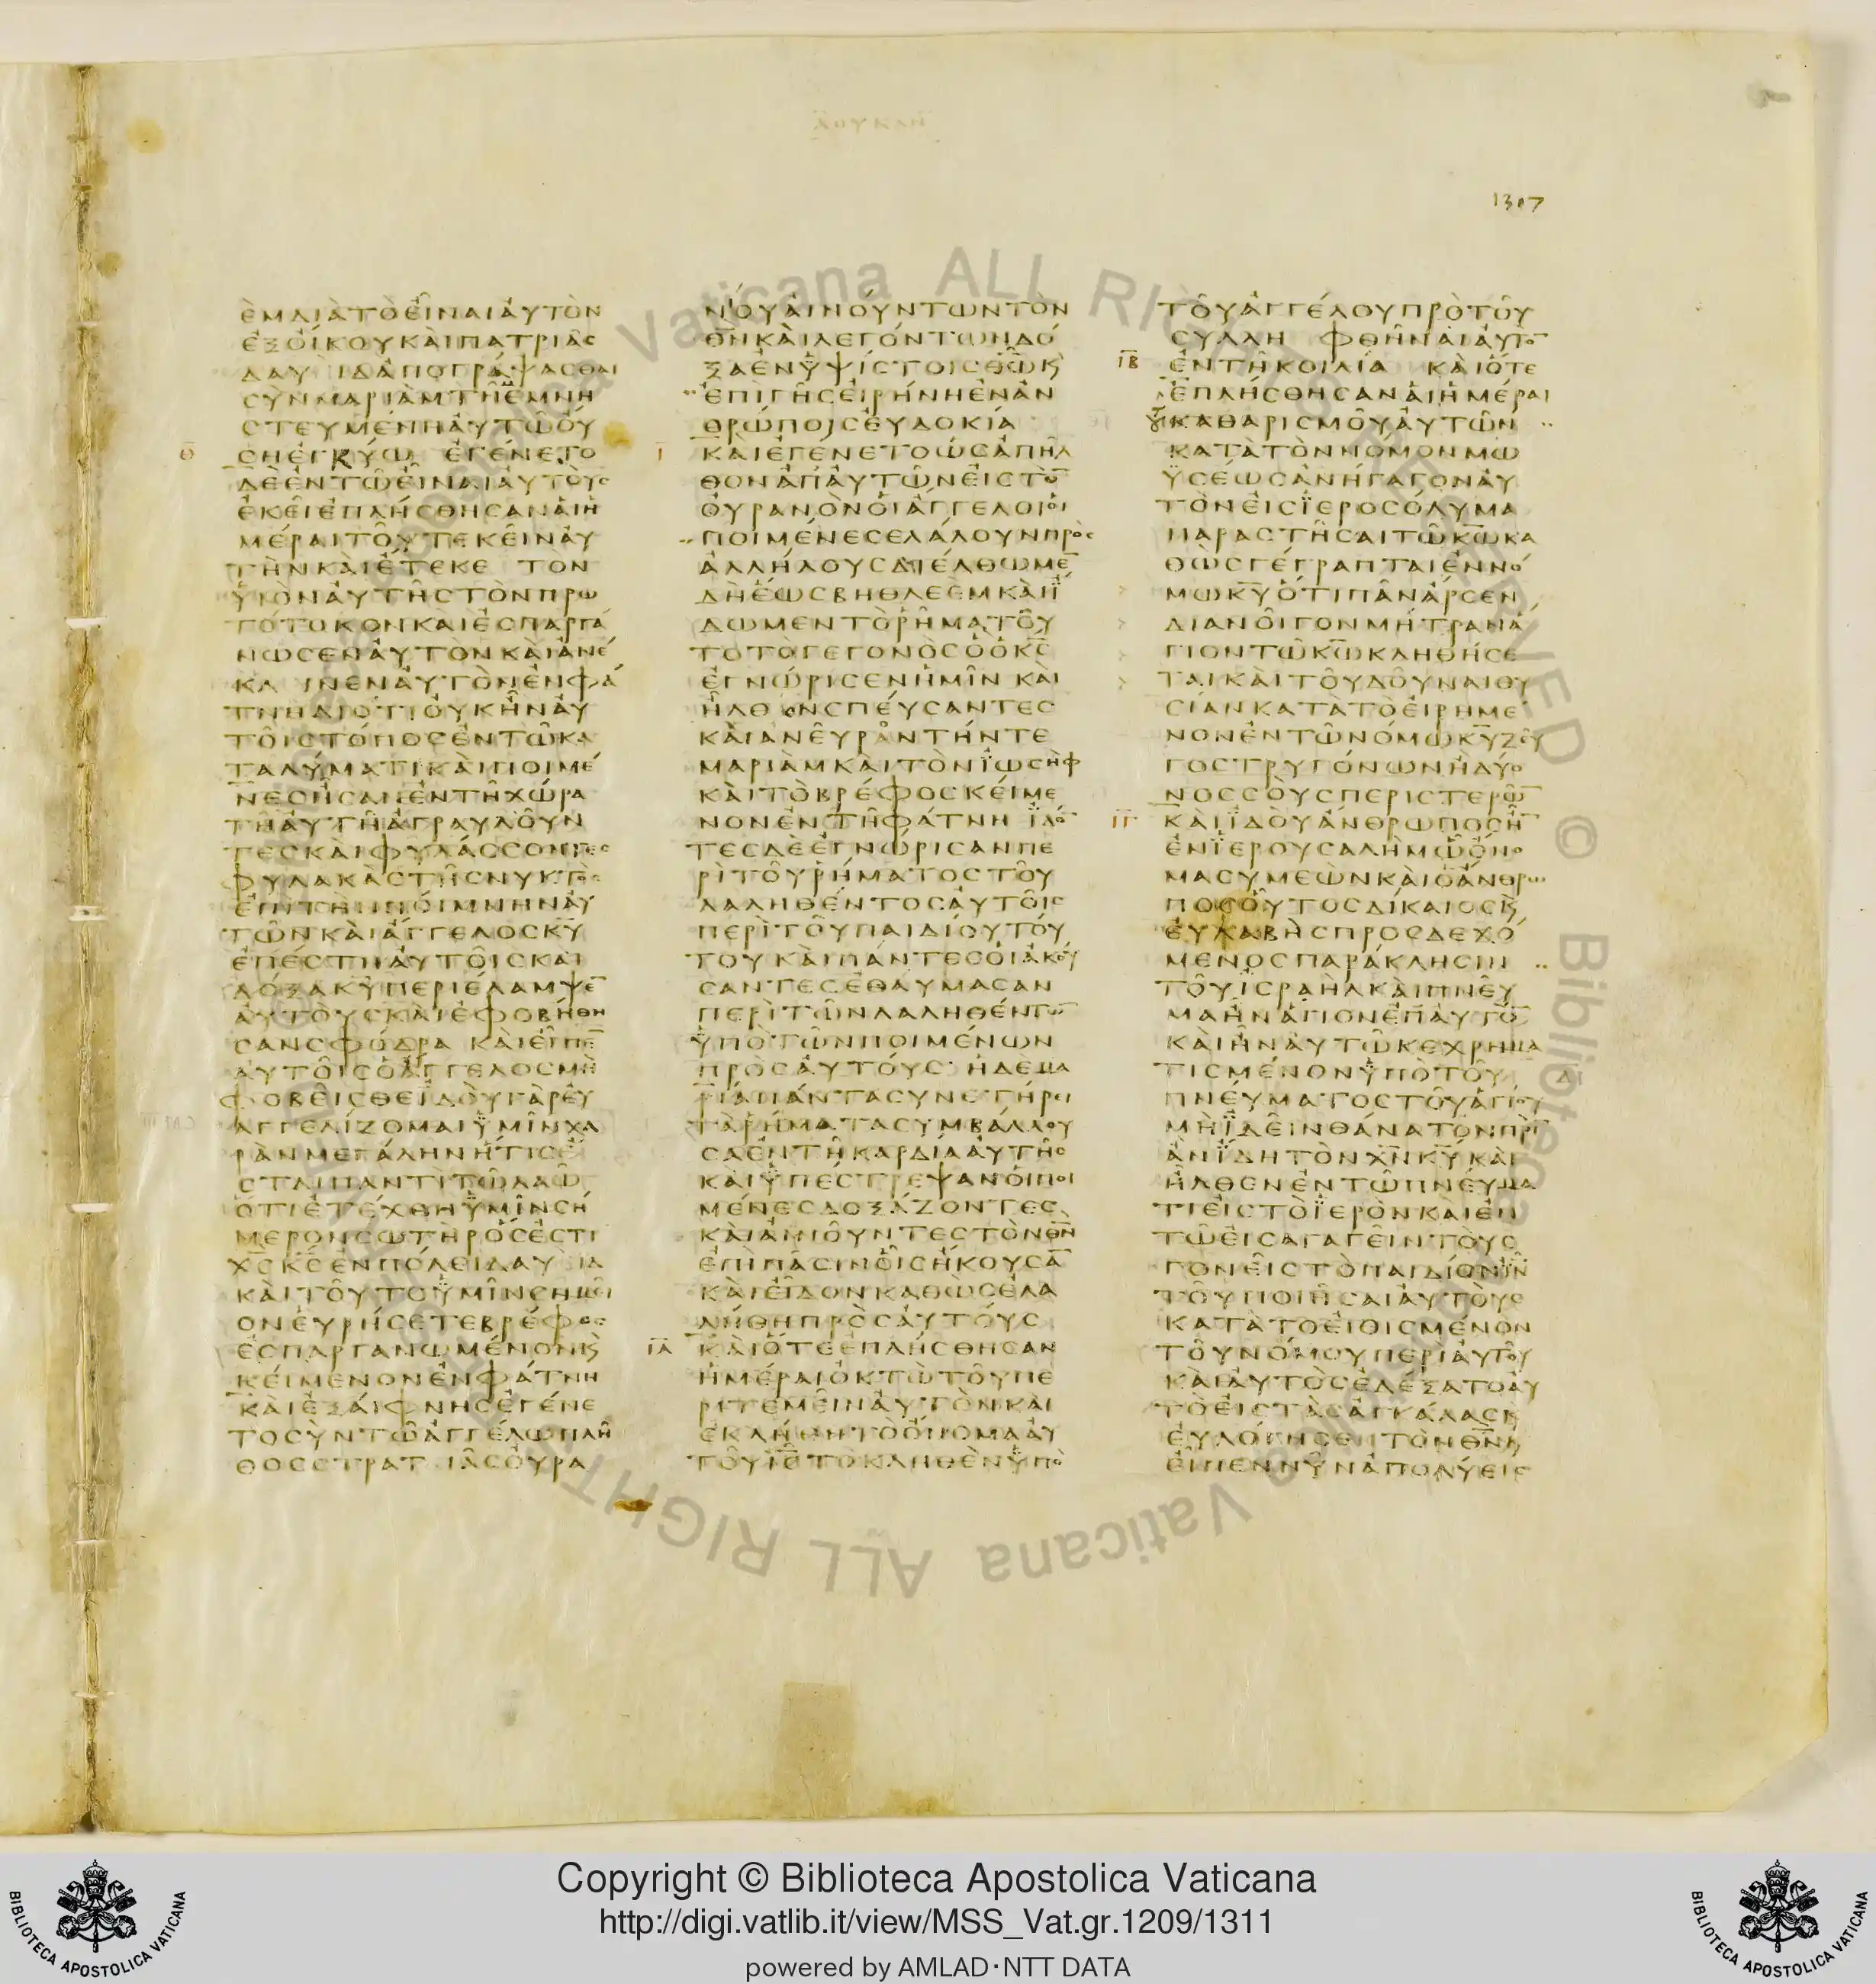 ΛΟΥΚΑΝ
1307
ἘΜΔΙᾺΤῸΕἾΝΑΙἈΥΤῸΝ
ἘΞΟΊΚΟΥΚΑῚΠΑΤΡΙᾶϹ
ΔΑΥΙΔἈΠΟΓΡΆΨΑϹΘΑΙ
ϹῪΝΜΑΡΙᾺΜΤΗ͂ἘΜΝΗ
ϹΤΕΥΜΈΝΗΑΥΤΩ͂ΟΎ
ϹΗἘΓΚΎΩ ἘΓΈΝΕΤΟ
Θ
ΔῈἘΝΤΩ͂ΕἾΝΑΙΑΥΤΟῪϹ
ἘΚΕΙἘΠΛΉϹΘΗϹΑΝΑΙΗ
ΜΈΡΑΙΤΟΥ͂ΤΕΚΕΙ͂ΝΑΥ
ΤῊΝΚΑῚἜΤΕΚΕ ΤῸΝ
ΥΙΟΝΑΥΤΗ͂ϹΤῸΝΠΡΩ
ΤΌΤΟΚΟΝΚΑῚἘϹΠΑΡΓΆ
ΝΩϹΕΝΑΥΤῸΝΚΑῚἈΝΈ
ΚΛΙΝΕΝΑΥΤῸΝἘΝΦΆ
ΤΝΗΔΙΌΤΙΟΥΚΗ͂ΝΑΥ
ΤΟΙ͂ϹΤΌΠΟϹἘΝΤΩ͂ΚΑ
ΤΑΛΎΜΑΤΙΚΑῚΠΟΙΜΈ
ΝΕϹΗϹΑΝἘΝΤΗ͂ΧΏΡΑ
ΤΗ͂ΑΥΤΗ͂ἈΓΡΑΥΛΟΥ͂Ν
ΤΕϹΚΑῚΦΥΛΆϹϹΟΝΤΕϹ
ΦΥΛΑΚᾺϹΤΗ͂ϹΝΥΚΤῸϹ
ἘΠῚΤῊΝΠΟΊΜΝΗΝΑΥ
ΤΩ͂ΝΚΑῚἌΓΓΕΛΟϹΚ̅Υ̅
ἘΠΈϹΤΗΑΥΤΟΙ͂ϹΚΑῚ
ΔΌΞΑΚ̅Υ̅ΠΕΡΙΈΛΑΜΨΕ̅
ΑΥΤΟῪϹΚΑῚἘΦΟΒΉΘΗ
ϹΑΝϹΦΌΔΡΑ ΚΑῚΕἾΠΕ̅
ΑΥΤΟΙ͂ϹὉἌΓΓΕΛΟϹΜῊ
ΦΟΒΕΙ͂ϹΘΕΪΔΟῪΓᾺΡΕΥ
ΑΓΓΕΛΊΖΟΜΑΙΫΜΙ͂ΝΧΑ
ΡᾺΝΜΕΓΆΛΗΝΉΤΙϹΈ
ϹΤΑΙΠΑΝΤῚΤΩ͂ΛΑΩ͂
ΌΤΙἘΤΈΧΘΗΫΜΙ͂ΝϹΉ
ΜΕΡΟΝϹΩΤῊΡΌϹἘϹΤΙ
Χ̅Ϲ̅Κ̅Ϲ̅ἘΝΠΌΛΕΙΔΑΥΙΔ
ΚΑῚΤΟΥ͂ΤΟΫΜΙ͂ΝϹΗΜΕΙ͂
ΟΝΕΥΡΉϹΕΤΕΒΡΈΦΟϹ
ἘϹΠΑΡΓΑΝΩΜΈΝΟΝΚ
ΚΕΊΜΕΝΟΝἘΝΦΆΤΝΗ
ΚΑῚἘΞΑΊΦΝΗϹἘΓΈΝΕ
ΤΟϹῪΝΤΩ͂ἈΓΓΈΛΩΠΛΗ͂
ΘΟϹϹΤΡΑΤΙᾶϹΟΥΡΑ
ΝΟΥΑΙΝΟΎΝΤΩΝΤῸΝ
Θ̅Ν̅ΚΑῚΛΕΓΌΝΤΩΝΔΌ
ΞΑἘΝΫΨΊϹΤΟΙϹΘ̅Ω̅Κ
ἘΠῚΓΗ͂ϹΕΙΡΉΝΗἘΝἈΝ
ΘΡΏΠΟΙϹΕΥΔΟΚΊΑ
Ι
ΚΑῚἘΓΈΝΕΤΟΩϹἈΠΗ͂Λ
ΘΟΝἈΠΑΥΤΩ͂ΝΕΙϹΤῸ̅
ΟΥΡΑΝῸΝΟΙἌΓΓΕΛΟΙΟΙ
ΠΟΙΜΈΝΕϹΕΛΆΛΟΥΝΠΡῸϹ
ἈΛΛΉΛΟΥϹΔΙΈΛΘΩΜΕ̅
ΔῊἝΩϹΒΗΘΛΕῈΜΚΑῚΪ
ΔΩΜΕΝΤῸΡΗ͂ΜΑΤΟΥ͂
ΤΟΤῸΓΕΓΟΝῸϹὉὉΚ̅Ϲ̅
ἘΓΝΏΡΙϹΕΝΗΜΙ͂Ν ΚΑῚ
ΗΛΘΟΝϹΠΕΎϹΑΝΤΕϹ
ΚΑῚἈΝΕΥ͂ΡΑΝΤΉΝΤΕ
ΜΑΡΙᾺΜΚΑῚΤῸΝΪΩϹῊΦ
ΚΑῚΤῸΒΡΈΦΟϹΚΕΊΜΕ
ΝΟΝἘΝΤΗ͂ΦΆΤΝΗ ΪΔΌ̅
ΤΕϹΔῈἘΓΝΏΡΙϹΑΝΠΕ
ΡῚΤΟΥ͂ΡΉΜΑΤΟϹΤΟΥ͂
ΛΑΛΗΘΈΝΤΟϹΑΥΤΟΙ͂Ϲ
ΠΕΡῚΤΟΥ͂ΠΑΙΔΊΟΥΤΟΎ
ΤΟΥΚΑῚΠΆΝΤΕϹΟΙἈΚΟΎ
ϹΑΝΤΕϹἘΘΑΎΜΑϹΑΝ
ΠΕΡῚΤΩ͂ΝΛΑΛΗΘΈΝΤΩ̅
ΫΠῸΤΩ͂ΝΠΟΙΜΈΝΩΝ
ΠΡῸϹΑΥΤΟΎϹ· ΗΔῈΜΑ
ΡΊΑΠΆΝΤΑϹΥΝΕΤΉΡΕΙ
ΤᾺΡΉΜΑΤΑϹΥΜΒΆΛΛΟΥ
ϹΑἘΝΤΗ͂ΚΑΡΔΊΑΑΥΤΗ͂Ϲ
ΚΑῚΫΠΈϹΤΡΕΨΑΝΟΙΠΟΙ
ΜΈΝΕϹΔΟΞΆΖΟΝΤΕϹ
ΚΑῚΑΙΝΟΥ͂ΝΤΕϹΤῸΝΘ̅Ν̅
ἘΠῚΠΑ͂ϹΙΝΟΙ͂ϹΗΚΟΥϹΑ̅
ΚΑῚΕἾΔΟΝΚΑΘῺϹἘΛΑ
ΛΉΘΗΠΡῸϹΑΥΤΟΎϹ
ΙΑ
ΚΑῚΌΤΕἘΠΛΉϹΘΗϹΑΝ
ΗΜΈΡΑΙΟΚΤῺΤΟΥ͂ΠΕ
ΡΙΤΕΜΕΙ͂ΝΑΥΤῸΝΚΑῚ
ἘΚΛΉΘΗΤῸΌΝΟΜΑΑΥ
ΤΟΥ͂Ι̅Ϲ̅ΤῸΚΛΗΘῈΝΫΠῸ
ΤΟΥ͂ἈΓΓΈΛΟΥΠΡῸΤΟΥ͂
ϹΥΛΛΗ ΦΘΗ͂ΝΑΙΑΥΤΟ̅
ἘΝΤΗ͂ΚΟΙΛΊΑ ΚΑῚΌΤΕ
ΙΒ
ἘΠΛΉϹΘΗϹΑΝΑΙΗΜΈΡΑΙ
ΤΟΥΚΑΘΑΡΙϹΜΟΥ͂ΑΥΤΩ͂Ν
ΚΑΤᾺΤῸΝΝΌΜΟΝΜΩ
ΫϹΈΩϹἈΝΉΓΑΓΟΝΑΥ
ΤῸΝΕΙϹΪΕΡΟϹΌΛΥΜΑ
ΠΑΡΑϹΤΗ͂ϹΑΙΤΩ͂Κ̅Ω̅ΚΑ
ΘῺϹΓΈΓΡΑΠΤΑΙἘΝΝΌ
ΜΩΚ̅Υ̅ΌΤΙΠΑ͂ΝἌΡϹΕΝ
ΔΙΑΝΟΙ͂ΓΟΝΜΉΤΡΑΝΆ
ΓΙΟΝΤΩ͂Κ̅Ω̅ΚΛΗΘΉϹΕ
ΤΑΙΚΑῚΤΟΥ͂ΔΟΥ͂ΝΑΙΘΥ
ϹΊΑΝΚΑΤᾺΤῸΕΙΡΗΜΈ
ΝΟΝἘΝΤΩ͂ΝΌΜΩΚ̅Υ̅ΖΕΥ͂
ΓΟϹΤΡΥΓΌΝΩΝΗΔΎΟ
ΝΟϹϹΟῪϹΠΕΡΙϹΤΕΡΩ͂̅
ΙΓ
ΚΑῚΪΔΟῪἌΝΘΡΩΠΟϹΗ͂̅
ἘΝΪΕΡΟΥϹΑΛῊΜΩ͂ΌΝΟ
ΜΑϹΥΜΕῺΝΚΑῚὉἌΝΘΡΩ
ΠΟϹΟΥ͂ΤΟϹΔΊΚΑΙΟϹΚ
ΕΥΛΑΒῊϹΠΡΟϹΔΕΧΌ
ΜΕΝΟϹΠΑΡΆΚΛΗϹΙΝ
ΤΟΥ͂ΙϹΡΑῊΛΚΑῚΠΝΕΥ͂
ΜΑΗ͂ΝἍΓΙΟΝἘΠΑΥΤΌ̅
ΚΑῚΗ͂ΝΑΥΤΩ͂ΚΕΧΡΗΜΑ
ΤΙϹΜΈΝΟΝΫΠῸΤΟΥ͂
ΠΝΕΎΜΑΤΟϹΤΟΥ͂ἉΓΊΟΥ
ΜῊΪΔΕΙ͂ΝΘΆΝΑΤΟΝΠΡῚ
ἊΝΪΔΗΤῸΝΧ̅Ν̅Κ̅Υ̅ΚΑῚ
ΗΛΘΕΝἘΝΤΩ͂ΠΝΕΎΜΑ
ΤΙΕΙϹΤῸΪΕΡῸΝΚΑῚἘΝ
ΤΩ͂ΕΙϹΑΓΑΓΕΙ͂ΝΤΟῪϹ
ΓΟΝΕΙ͂ϹΤῸΠΑΙΔΊΟΝΙ̅Ν̅
ΤΟΥ͂ΠΟΙΗ͂ϹΑΙΑΥΤΟῪϹ
ΚΑΤᾺΤῸΕΙΘΙϹΜΈΝΟΝ
ΤΟΥ͂ΝΌΜΟΥΠΕΡῚΑΥΤΟΥ͂
ΚΑῚΑΥΤῸϹἘΔΈΞΑΤΟΑΥ
ΤῸΕΙϹΤᾺϹἈΓΚΆΛΑϹΚ
ΕΥΛΌΓΗϹΕΝΤῸΝΘ̅Ν̅Κ
ΕἾΠΕΝΝΥ͂ΝἈΠΟΛΎΕΙϹ
Copyright © Biblioteca Apostolica Vaticana
http://digi.vatlib.it/view/MSS_Vat.gr.1209/1311
powered by AMLAD·NTT DATA
BIBLIOTECA APOSTOLICA VATICANA
BIBLIOTECA APOSTOLICA VATICANA